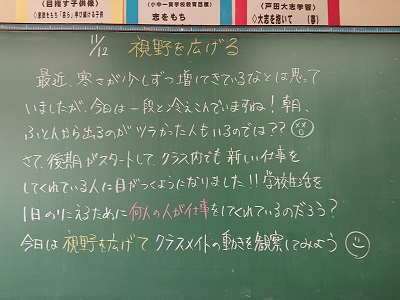 〈目指す子供像〉
〈小中一貫学校教育目標〉
志をもち
〈戸田大志学習〉
◇大志を抱いて
11/12 視野を広げる
最近、寒さが少しずつ増してきているなとは思って
いましたが、今日は一段と冷えこんでいますね！朝、
ふとんから出るのがツラかった人もいるのでは？？
さて、後期がスタートして、クラス内でも新しい仕事を
してくれている人に目がつくようになりました！！学校生活を
1日のりこえるために何人の人が仕事をしてくれているのだろう？
今日は視野を広げてクラスメイトの動きを観察してみよう